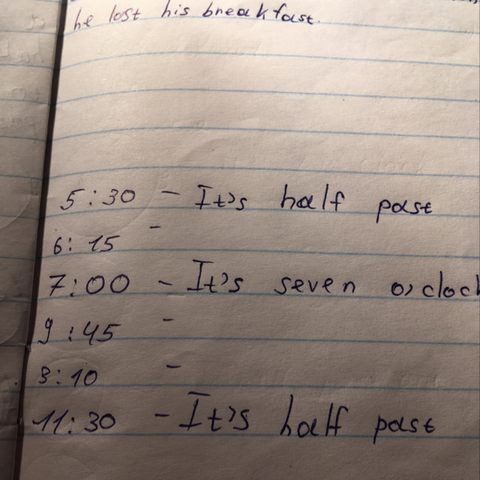 he lost his breakfast.
5:30 - It's half past
6:15 -
7:00 - It's seven o,clock
9:45 -
3:10 -
11:30 - It's half past